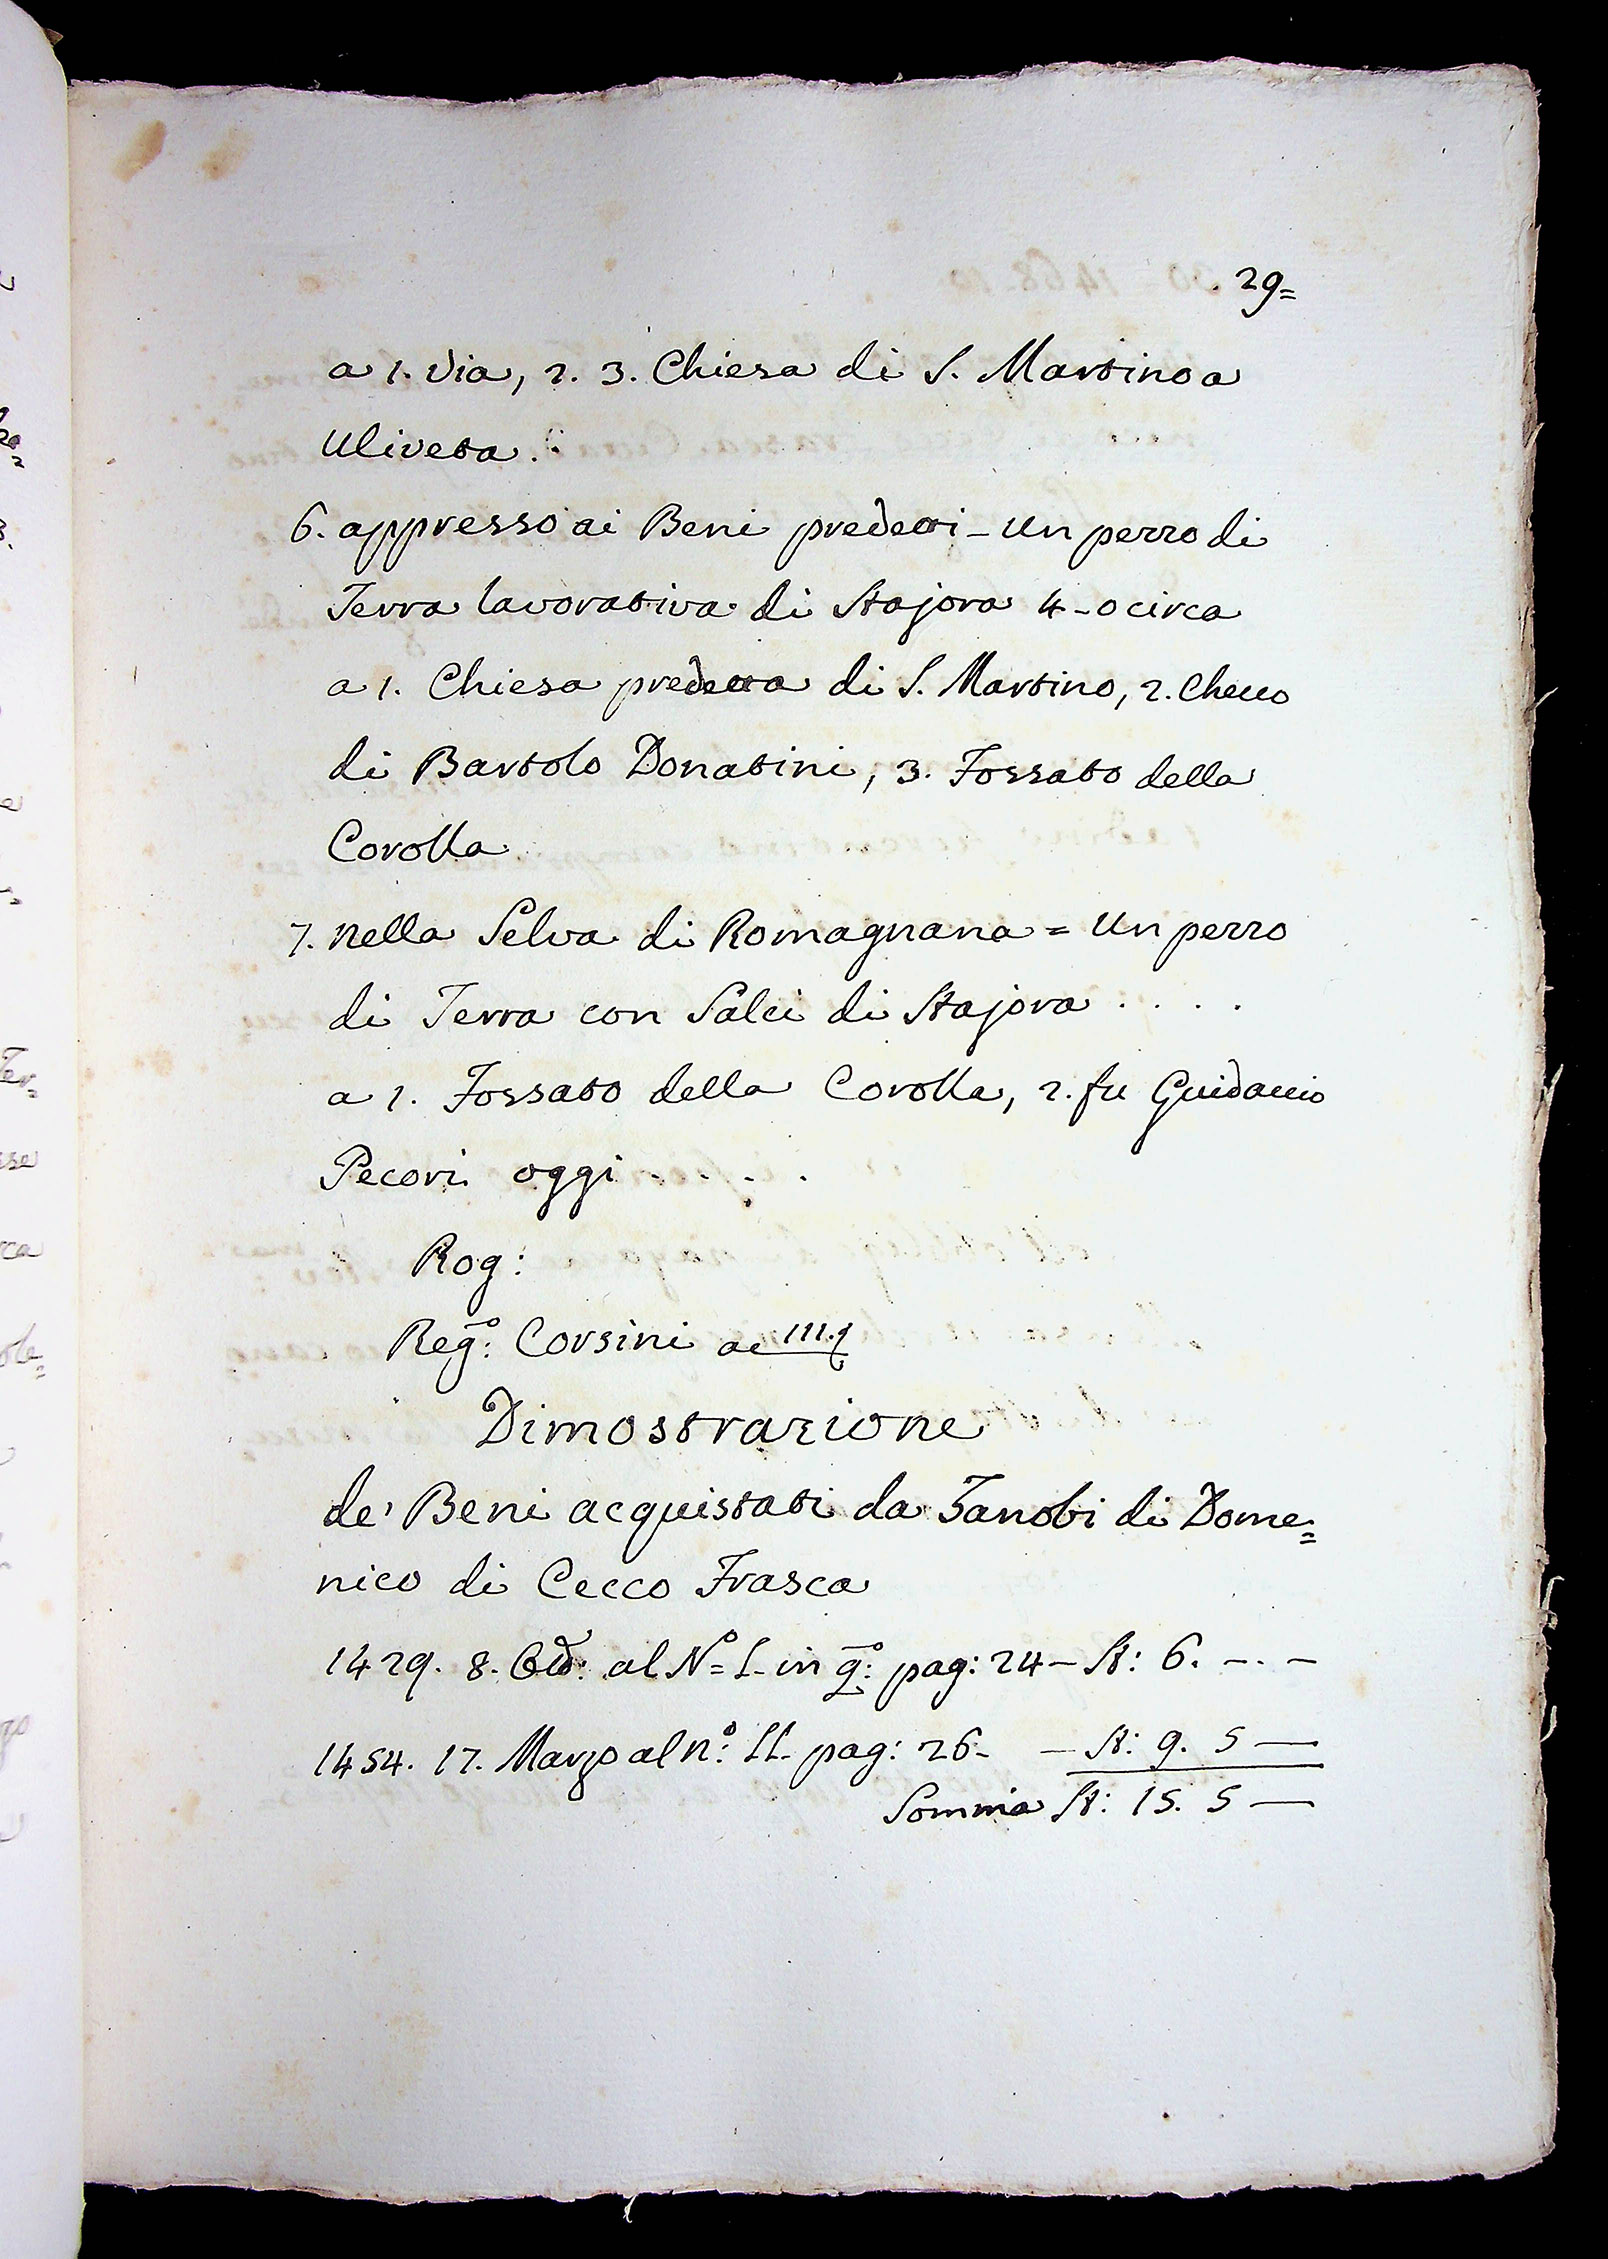 29=
a 1. Via, 2. 3. Chiesa di S. Martino a
Uliveta.
6. appresso ai Beni predetti - Un pezzo di
Terra lavorativa di Stajora 4-0 circa
a 1. Chiesa predetta di S. Martino, 2. Checco
di Bartolo Donatini, 3. Fossato della
Corolla
7. nella Selva di Romagnana = Un pezzo
di Terra con Salci di Stajora . . . .
a 1. Fossato della Corolla, 2. fu Guidaccio
Pecori oggi . . . .
Rog:
Reg.º: Corsini ac
Dimostrazione
de' Beni acquistati da Zanobi di Dome=
nico di Cecco Frasca
1429. 8. al Nº= I- in q.º: pag: 24 - St: 6. -. -
1454. 17. Marzo al n.º: II- pag: 26- - St: 9. 5 —
Somma St: 15. 5 —